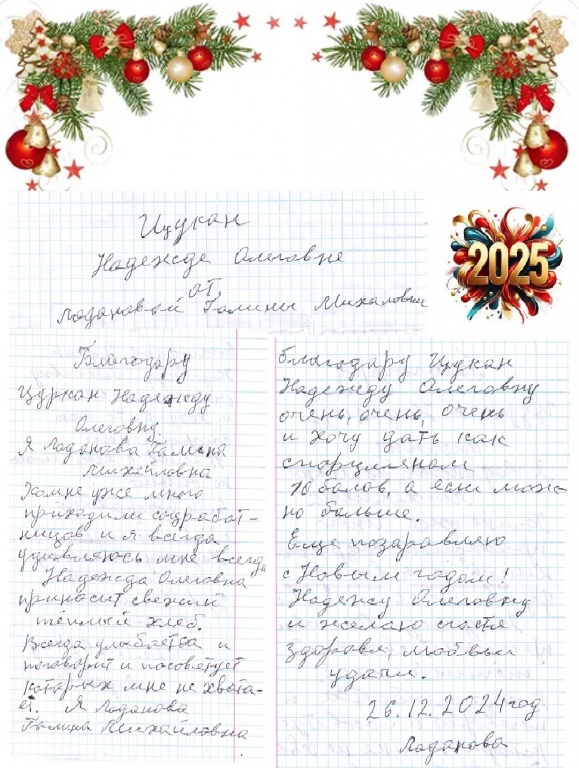 Цукан
Надежде Олеговне
от
Лодановой Галины Михаловны
2025
Благодору
Цуркан Надежду
Олеговну.
Я Лоданова Галина
Михайловна
Комне уже много
приходили соцработ-
ницов и я всегда
удивляюсь мне всегда
Надежда Олеговна
приносит свежий
тёплый хлеб.
Всегда улыбается и
поговорит и посоветует
которых мне не хвата-
ет. Я Лоданова
Галина Михайловна
благодару Цукан
Надежду Олеговну
очень, очень, очень
и хочу дать как
спорцменом
10 балов, а если мож-
но больше.
Еще позаравляю
с Новым годом!
Надежу Олеговну
и желаю счастя
здоровя, любвьи
удачи.
26.12.2024 год
Лоданова